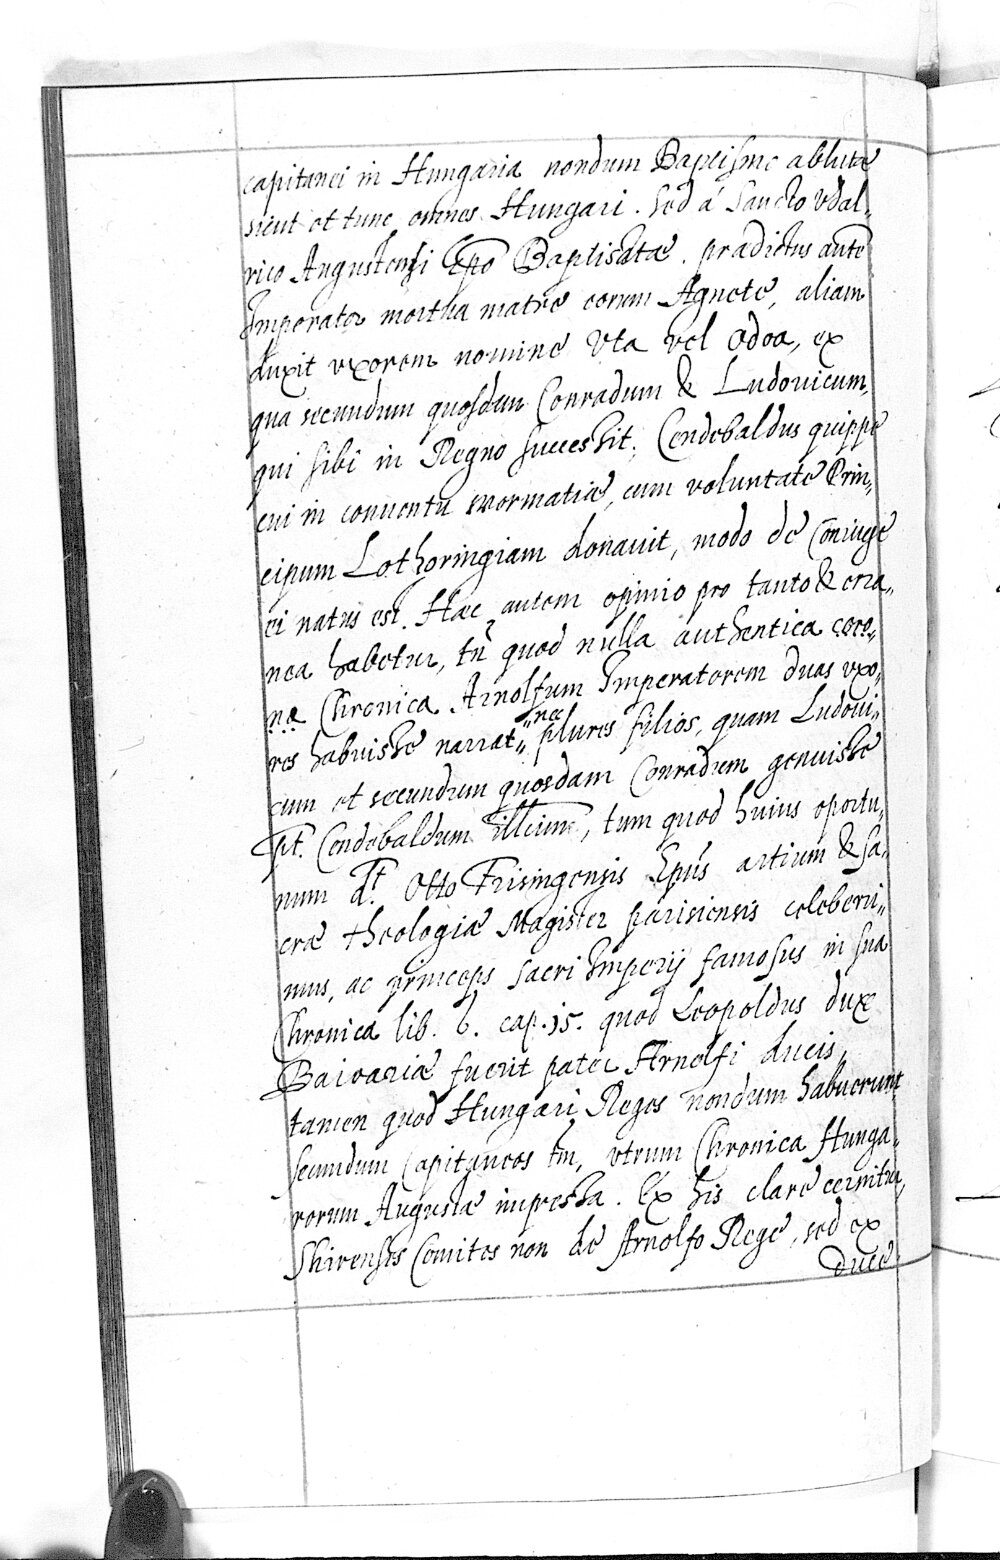 capitanei in Hungaria nondum Baptismo ablutæ
sicut et tunc omnes Hungari. sed á Sancto Vdal„
rico Augustensi Epo Baptisatæ. prædictus aute
Imperator mortua matre eorum Agnete, aliam
duxit vxorem nomine Vta vel Odoa, ex
qua secundum quosdam Conradum & Ludouicum
qui sibi in Regno successit. Cendebaldus quippe
cui in conuentu Wormatiæ, cum voluntate Prin„
cipum Lothoringiam donauit, modo de Coniuge
ei natus est. Hæc autem opinio pro tanto & erra„
nea habetur, tū quod nulla authentica coro„
na Chronica Arnolfum Imperatorem duas vxo„
res habuisse narrat„ nec plures filios, quam Ludoui„
cum et secundum quosdam Conradum genuisse
pt. Cendebaldum, tum quod huius oportu„
num d.t Otto Frisingensis Epus artium & sa„
cræ theologiæ Magister parisiensis celeberri„
mus, ac princeps sacri Imperij famosus in sua
Chronica lib. 6. cap. 15. quod Leopoldus dux
Baioariæ fuerit pater Arnolfi ducis,
tamen quod Hungari Reges nondum habuerunt
secundum Capitaneos tm, vtrum Chronica Hunga„
rorum Augustæ impressa. Ex his clare cernitur,
Shirenses Comites non de Arnolfo Rege, sed ex
duce